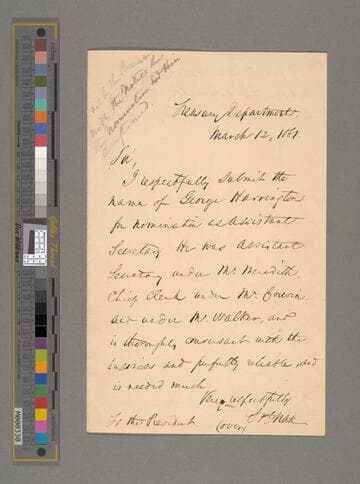 Treasury Department
March 12, 1861
Sir,
I respectfully submit the
name of George Harrington
for nomination as Assistant
Secretary He was Assistant
Secretary under Mr. Meredith,
Chief Clerk under Mr Corwin.
and under Mr. Walker, and
is thoroughly conversant with the
business and perfectly reliable, and
is needed much
Very respectfully
To the President (over) S P Chase
the Notice
nomination had been
Color Tools
M000338